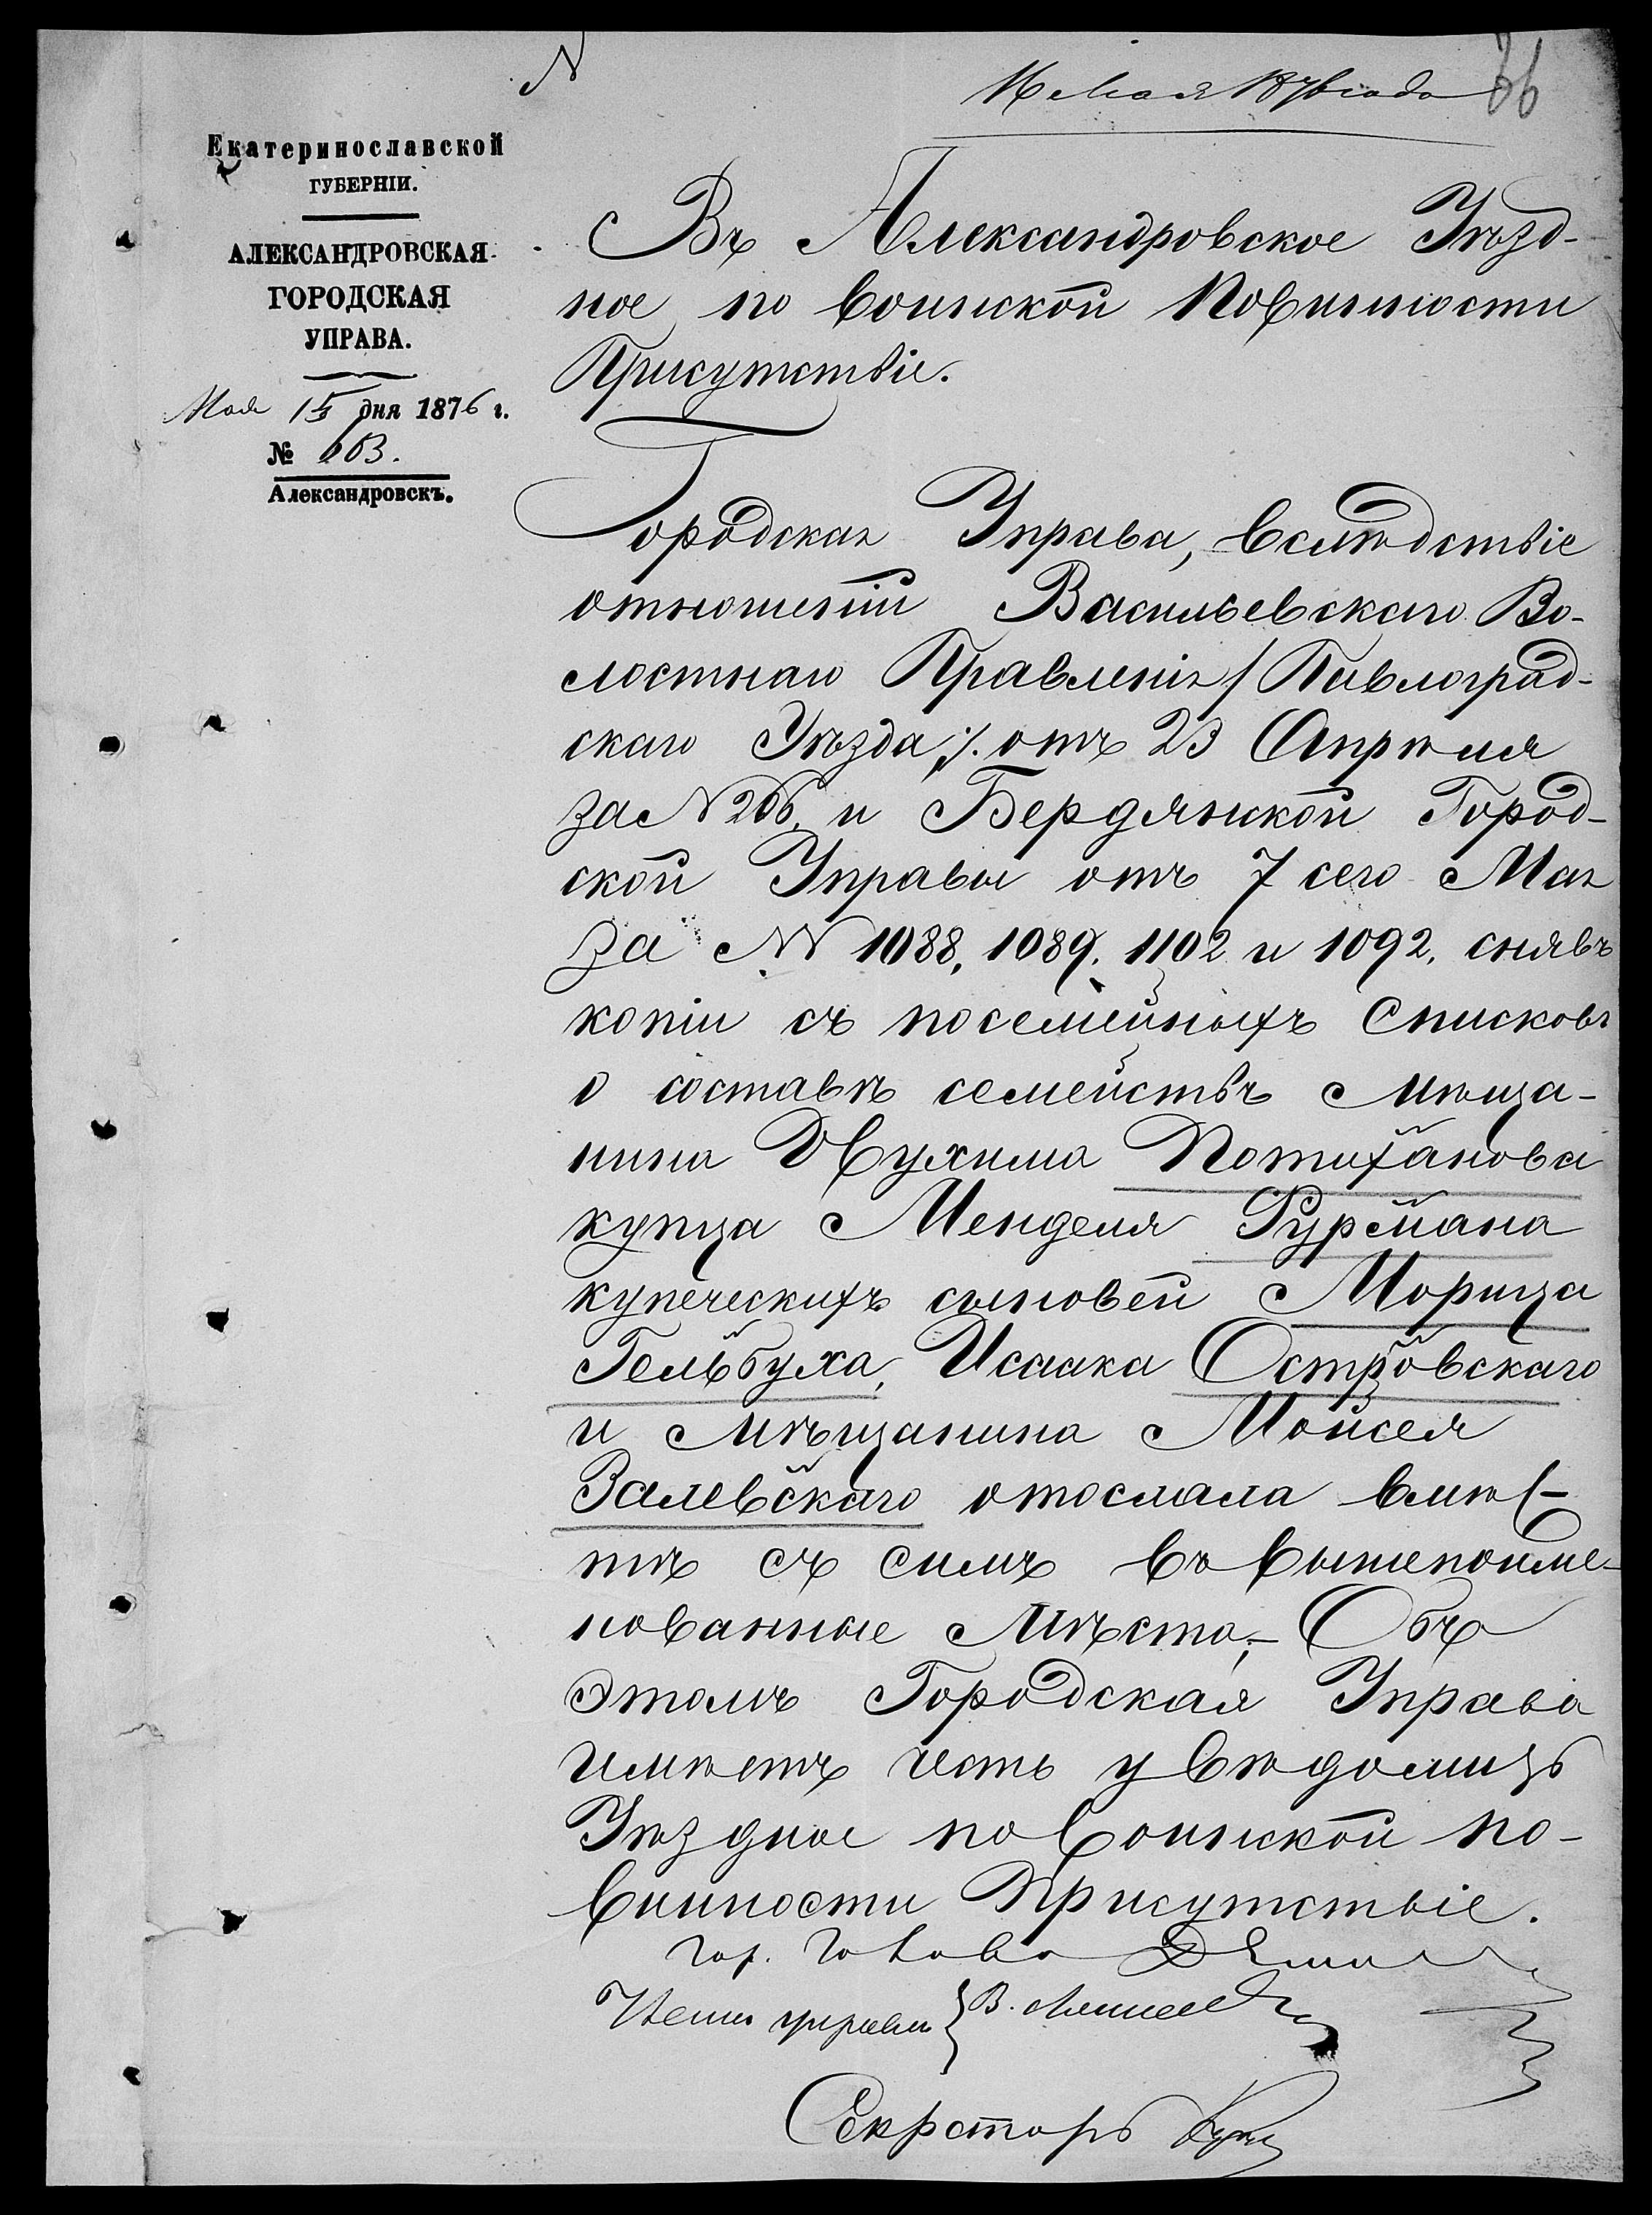 N
16 Мая 1876 года
66
Екатеринославской
ГУБЕРНІИ.
АЛЕКСАНДРОВСКАЯ
ГОРОДСКАЯ
УПРАВА.
Мая 15 дня 1876 г.
№ 663.
Александровскъ.
Въ Александровское Уѣзд-
ное по воинской Повинности
Присутствіе.
Городская Управа, вслѣдствіе
отношеній Васильевскаго Во-
лостнаго Правленія /Павлоград-
скаго Уѣзда/. отъ 23 Апрѣля
за N 266, и Бердянской Город-
ской Управы отъ 7 сего Мая
за NN 1088, 1089, 1102 и 1092, снявъ
копіи съ посемейныхъ Списковъ
о составѣ семействъ мѣща-
нина Нухима Потиханова
купца Менделя Фурмана
купеческихъ сыновей Морица
Гельбуха, Исаака Островскаго
и мѣщанина Моисея
Залевскаго отослала вмѣс-
тѣ съ симъ въ вышепоиме-
нованные мѣста,- Объ
этомъ Городская Управа
имѣетъ честь увѣдомить
Уѣздное по воинской по-
винности Присутствіе.
Гор. Голова
Члены управы } В.
Секретарь